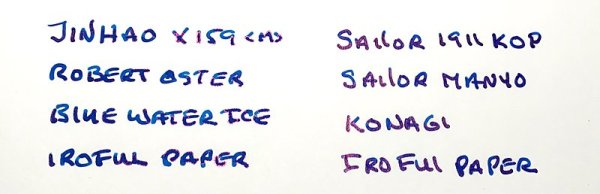 JINHAO X159 <M>
ROBERT OSTER
BLUE WATER ICE
IROFUL PAPER
SAILOR 1911 KOP
SAILOR MANYO
KONAGI
IROFUL PAPER